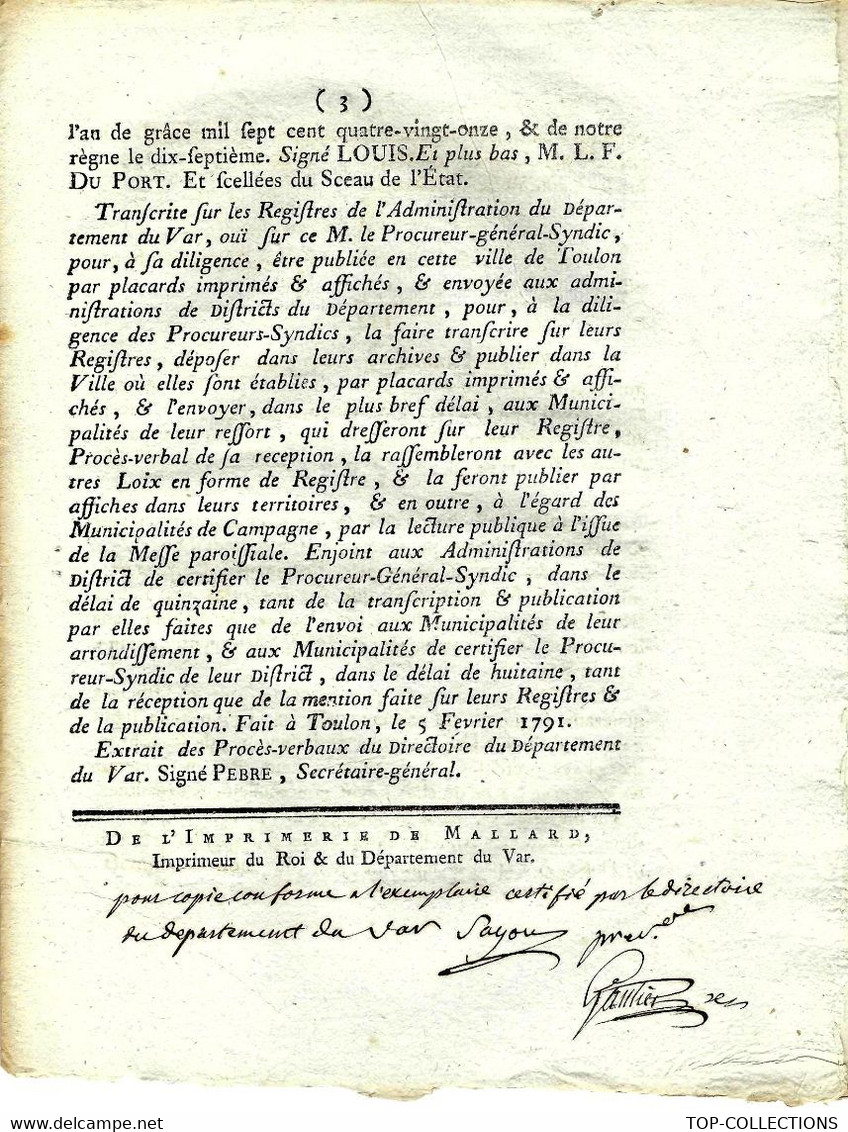 ( 3 )
l'an de grâce mil ſept cent quatre-vingt-onze, & de notre
règne le dix-ſeptième. Signé LOUIS. Et plus bas, M. L. F.
DU PORT. Et ſcellées du Sceau de l'État.
Tranſcrite ſur les Regiſtres de l'Adminiſtration du Dépar-
tement du Var, ouï ſur ce M. le Procureur-général-Syndic,
pour, à ſa diligence, être publiée en cette ville de Toulon
par placards imprimés & affichés, & envoyée aux admi-
niſtrations de Diſtricts du Département, pour, à la dili-
gence des Procureurs-Syndics, la faire tranſcrire ſur leurs
Regiſtres, dépoſer dans leurs archives & publier dans la
Ville où elles ſont établies, par placards imprimés & affi-
chés, & l'envoyer, dans le plus bref délai, aux Munici-
palités de leur reſſort, qui dreſſeront ſur leur Regiſtre,
Procès-verbal de ſa reception, la raſſembleront avec les au-
tres Loix en forme de Regiſtre, & la feront publier par
affiches dans leurs territoires, & en outre, à l'égard des
Municipalités de Campagne, par la lecture publique à l'iſſue
de la Meſſe paroiſſiale. Enjoint aux Adminiſtrations de
Diſtrict de certifier le Procureur-Général-Syndic, dans le
délai de quinzaine, tant de la tranſcription & publication
par elles faites que de l'envoi aux Municipalités de leur
arrondiſſement, & aux Municipalités de certifier le Procu-
reur-Syndic de leur Diſtrict, dans le délai de huitaine, tant
de la réception que de la mention faite ſur leurs Regiſtres &
de la publication. Fait à Toulon, le 5 Fevrier 1791.
Extrait des Procès-verbaux du Directoire du Département
du Var. Signé PEBRE, Secrétaire-général.
DE L'IMPRIMERIE DE MALLARD,
Imprimeur du Roi & du Département du Var.
pour copie conforme a l'exemplaire certifié par le directoire
du departement du var
Gautier
TOP-COLLECTIONS
delcampe.net